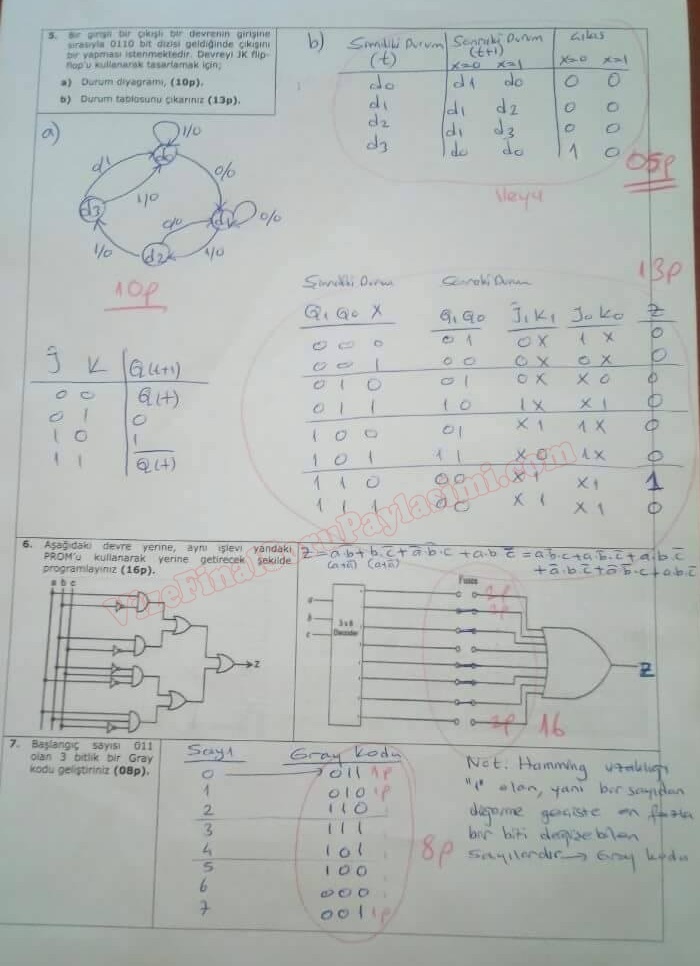 5. Bir girişli bir çıkışlı bir devrenin girişine
sırasıyla 0110 bit dizisi geldiğinde çıkışını
bir yapması istenmektedir. Devreyi JK flip-
flop'u kullanarak tasarlamak için;
a) Durum diyagramı, (10p).
b) Durum tablosunu çıkarınız (13p).
b)
Şimdiki Durum Sonraki Durum Çıkış
(t) (t+1)
x=0 x=1 x=0 x=1
d0 d1 d0 0 0
d1 d1 d2 0 0
d2 d1 d3 0 0
d3 d0 d0 1 0
05p
Veya
a)
1/0
0/1 d0 0/0
d3 1/0 0/0 d1 0/0
1/0 d2 1/0
10p
13p
Şimdiki Durum Sonraki Durum
Q1 Q0 X Q1 Q0 J1 K1 J0 K0 Z
0 0 0 0 1 0 X 1 X 0
0 0 1 0 0 0 X 0 X 0
0 1 0 0 1 0 X X 0 0
0 1 1 1 0 1 X X 1 0
1 0 0 0 1 X 1 1 X 0
1 0 1 1 1 X 0 1 X 0
1 1 0 0 0 X 1 X 1 1
1 1 1 0 0 X 1 X 1 0
J K Q(t+1)
0 0 Q(t)
0 1 0
1 0 1
1 1 Q̅(t)
VizeFinalSoruPaylasimi.com
6. Aşağıdaki devre yerine, aynı işlevi yandaki
PROM'u kullanarak yerine getirecek şekilde
programlayınız (16p).
a b c
Z
Fuses
a
b
c
3 x 8
Decoder
2p
2p
2p
16
Z
7. Başlangıç sayısı 011
olan 3 bitlik bir Gray
kodu geliştiriniz (08p).
Sayı Gray Kodu
0 → 011 1p
1 010 1p
2 110
3 111
4 101
5 100
6 000
7 001 1p
8p
Not: Hamming uzaklığı
"1" olan, yani bir sayıdan
diğerine geçişte en fazla
bir biti değişebilen
sayılardır → Gray kodu